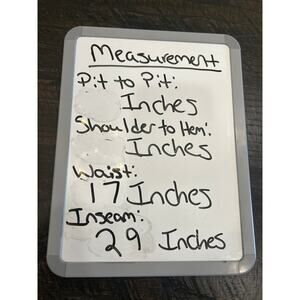 Measurement
Pit to Pit:
Inches
Shoulder to Hem:
Inches
Waist:
17 Inches
Inseam:
29 Inches